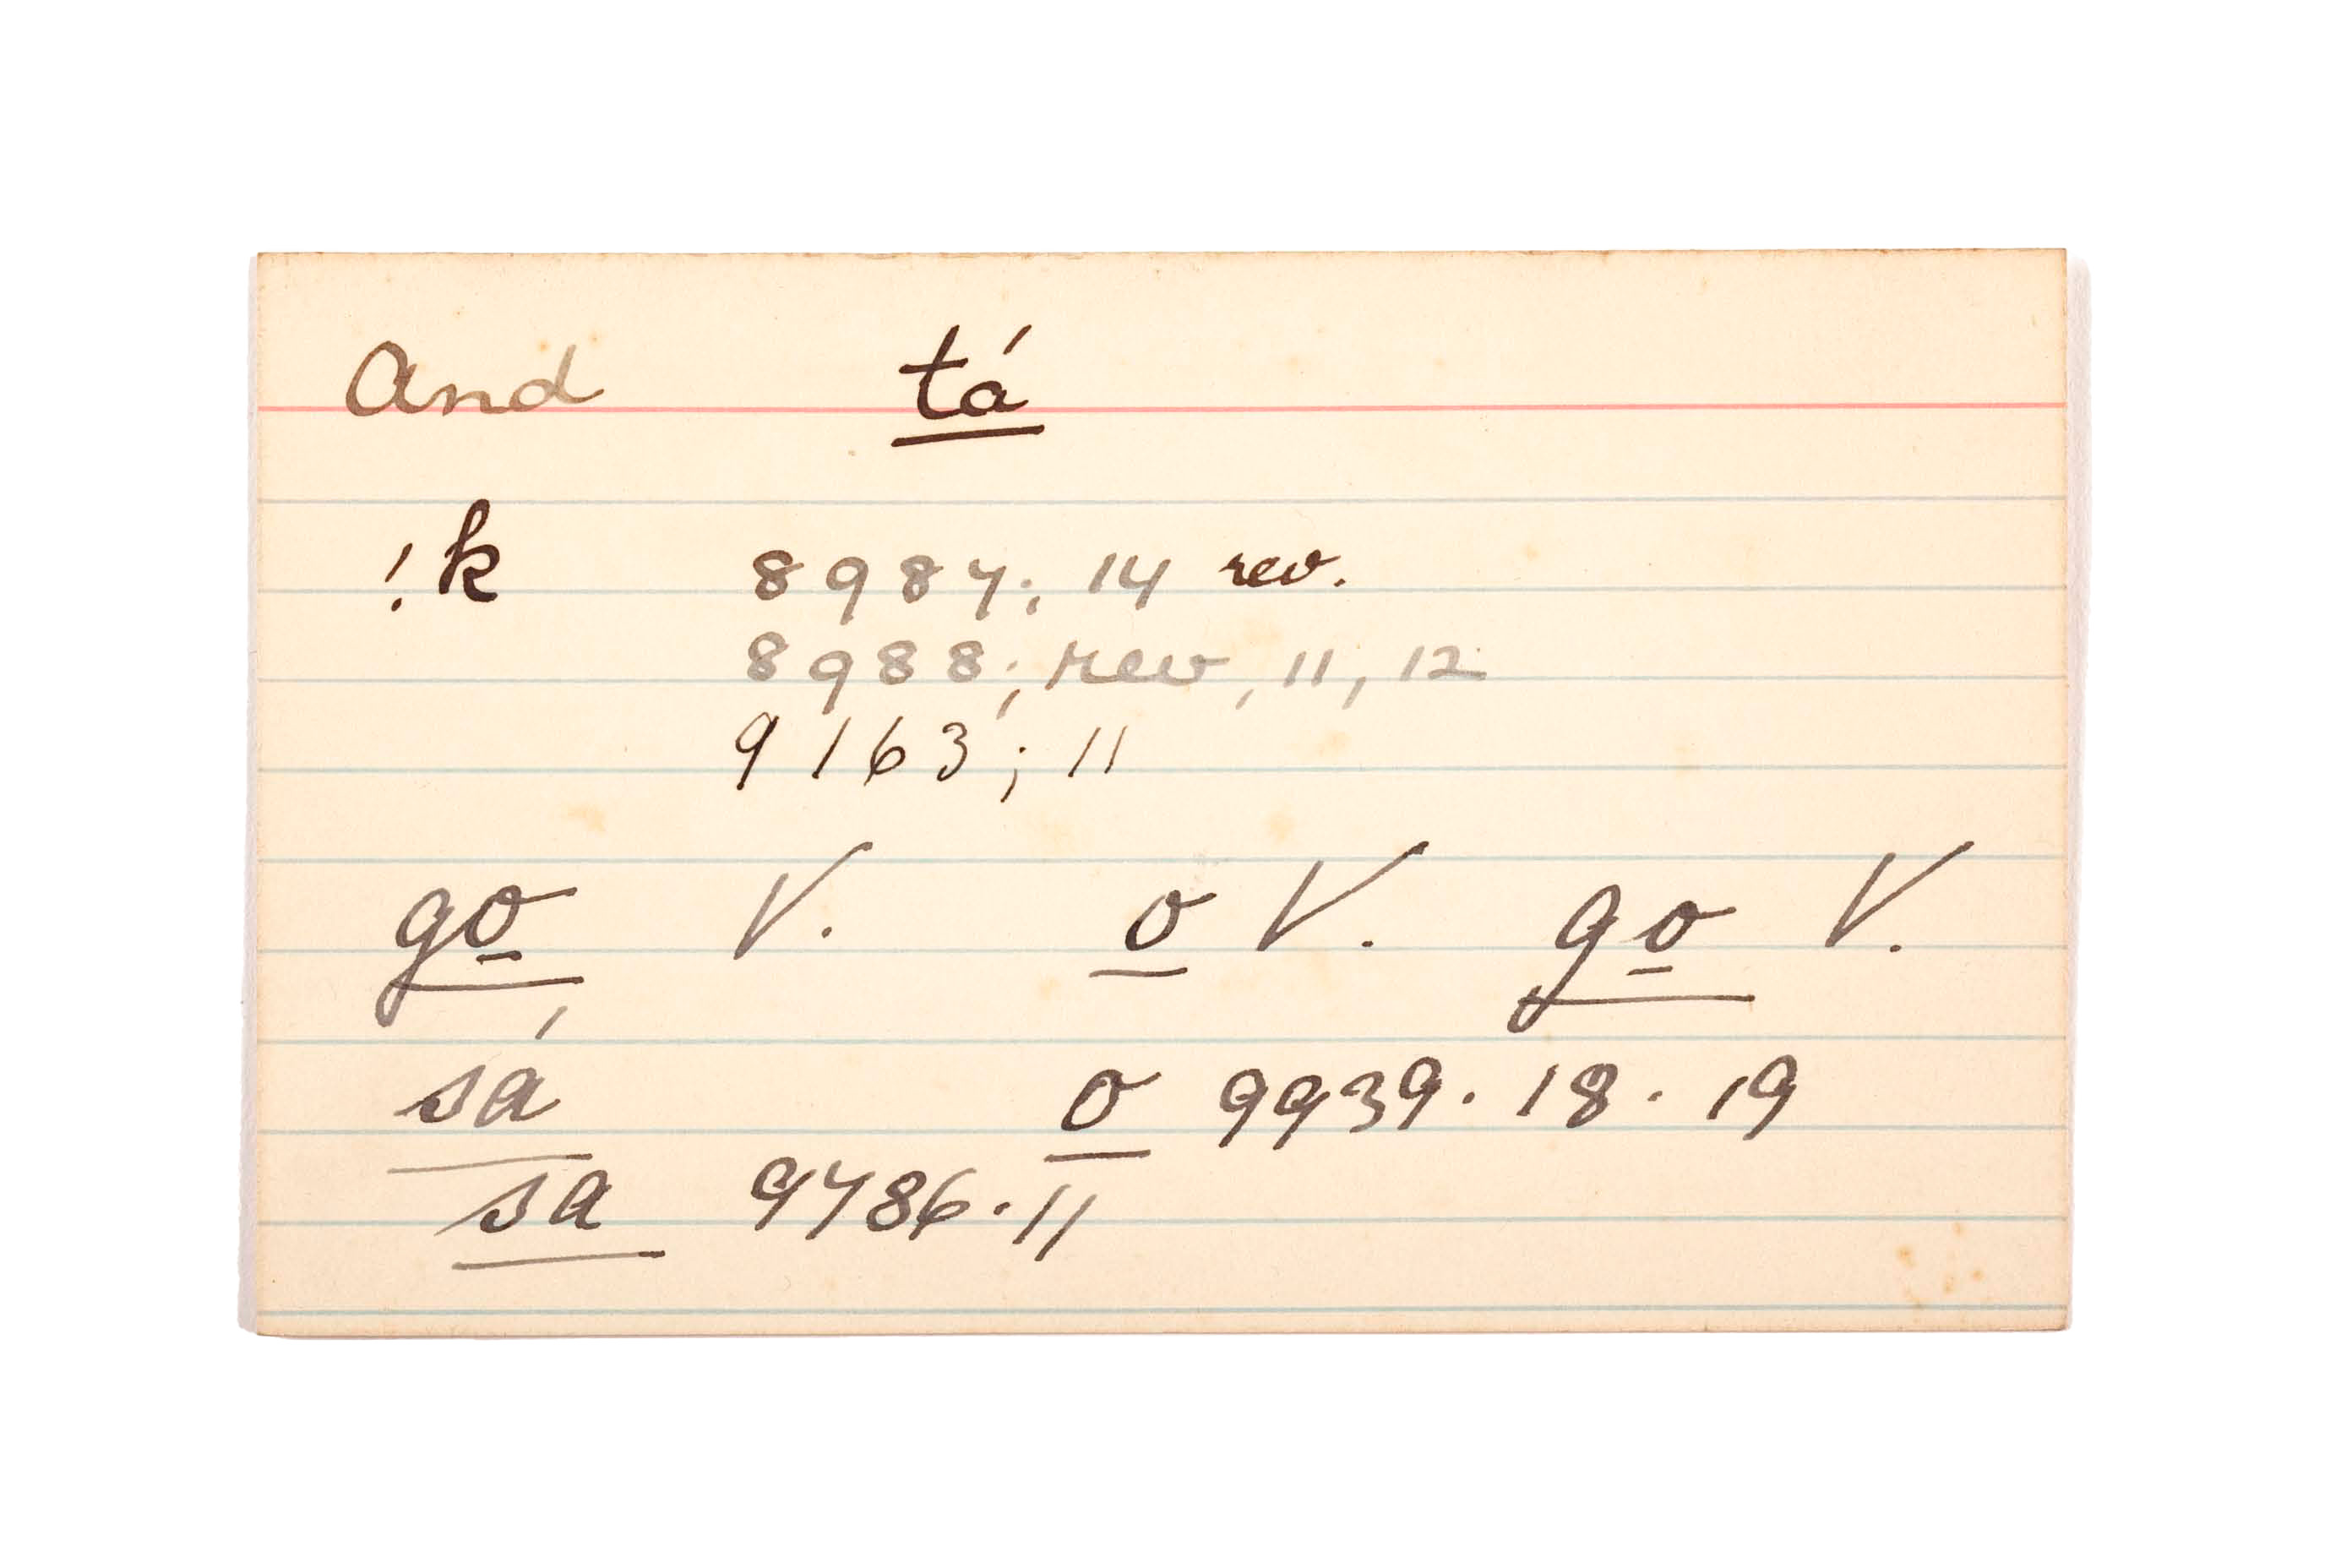 And tá
!k 8987; 14 rev.
8988; rev, 11, 12
9163; 11
go V. o V. go V.
sá o 9939. 18. 19
sa 9786. 11